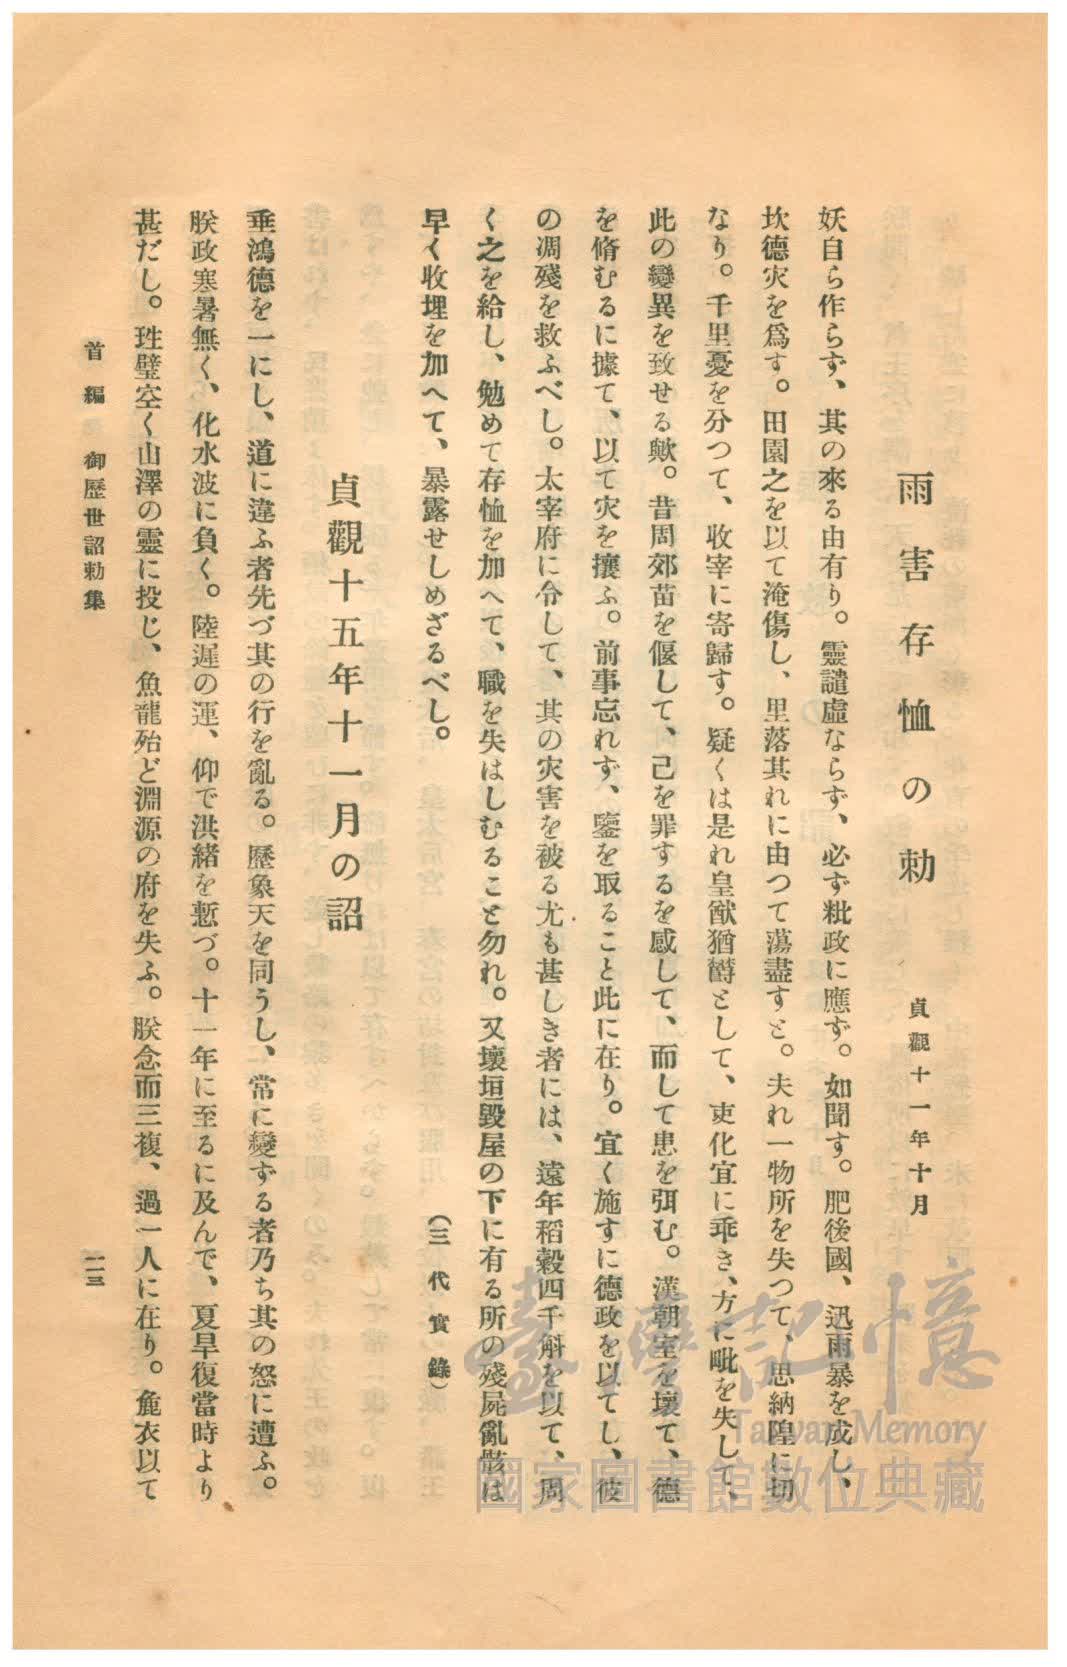 雨害存恤の勅 貞觀十一年十月
妖自ら作らず、其の來る由有り。靈譴虛ならず、必ず粃政に應ず。如聞す。肥後國、迅雨暴を成し、
坎德灾を爲す。田園之を以て淹傷し、里落其れに由つて蕩盡すと。夫れ一物所を失つて、思納隍に切
なり。千里憂を分つて、收宰に寄歸す。疑くは是れ皇猷猶欝として、吏化宜に乖き、方に毗を失して、
此の變異を致せる歟。昔周郊苗を偃して、己を罪するを感して、而して患を弭む。漢朝室を壞て、德
を脩むるに據て、以て灾を攘ふ。前事忘れず、鑒を取ること此に在り。宜く施すに德政を以てし、彼
の凋殘を救ふべし。太宰府に令して、其の灾害を被る尤も甚しき者には、遠年稻穀四千斛を以て、周
く之を給し、勉めて存恤を加へて、職を失はしむること勿れ。又壞垣毀屋の下に有る所の殘屍亂骸は
早く收埋を加へて、暴露せしめざるべし。 （三代實錄）
貞觀十五年十一月の詔
垂鴻德を一にし、道に違ふ者先づ其の行を亂る。歷象天を同うし、常に變ずる者乃ち其の怒に遭ふ。
朕政寒暑無く、化水波に負く。陸遲の運、仰で洪緒を慙づ。十一年に至るに及んで、夏旱復當時より
甚だし。珄璧空く山澤の靈に投じ、魚龍殆ど淵源の府を失ふ。朕念而三複、過一人に在り。麁衣以て
首編 御歷世詔勅集 二三
臺灣記憶
Taiwan Memory
國家圖書館數位典藏